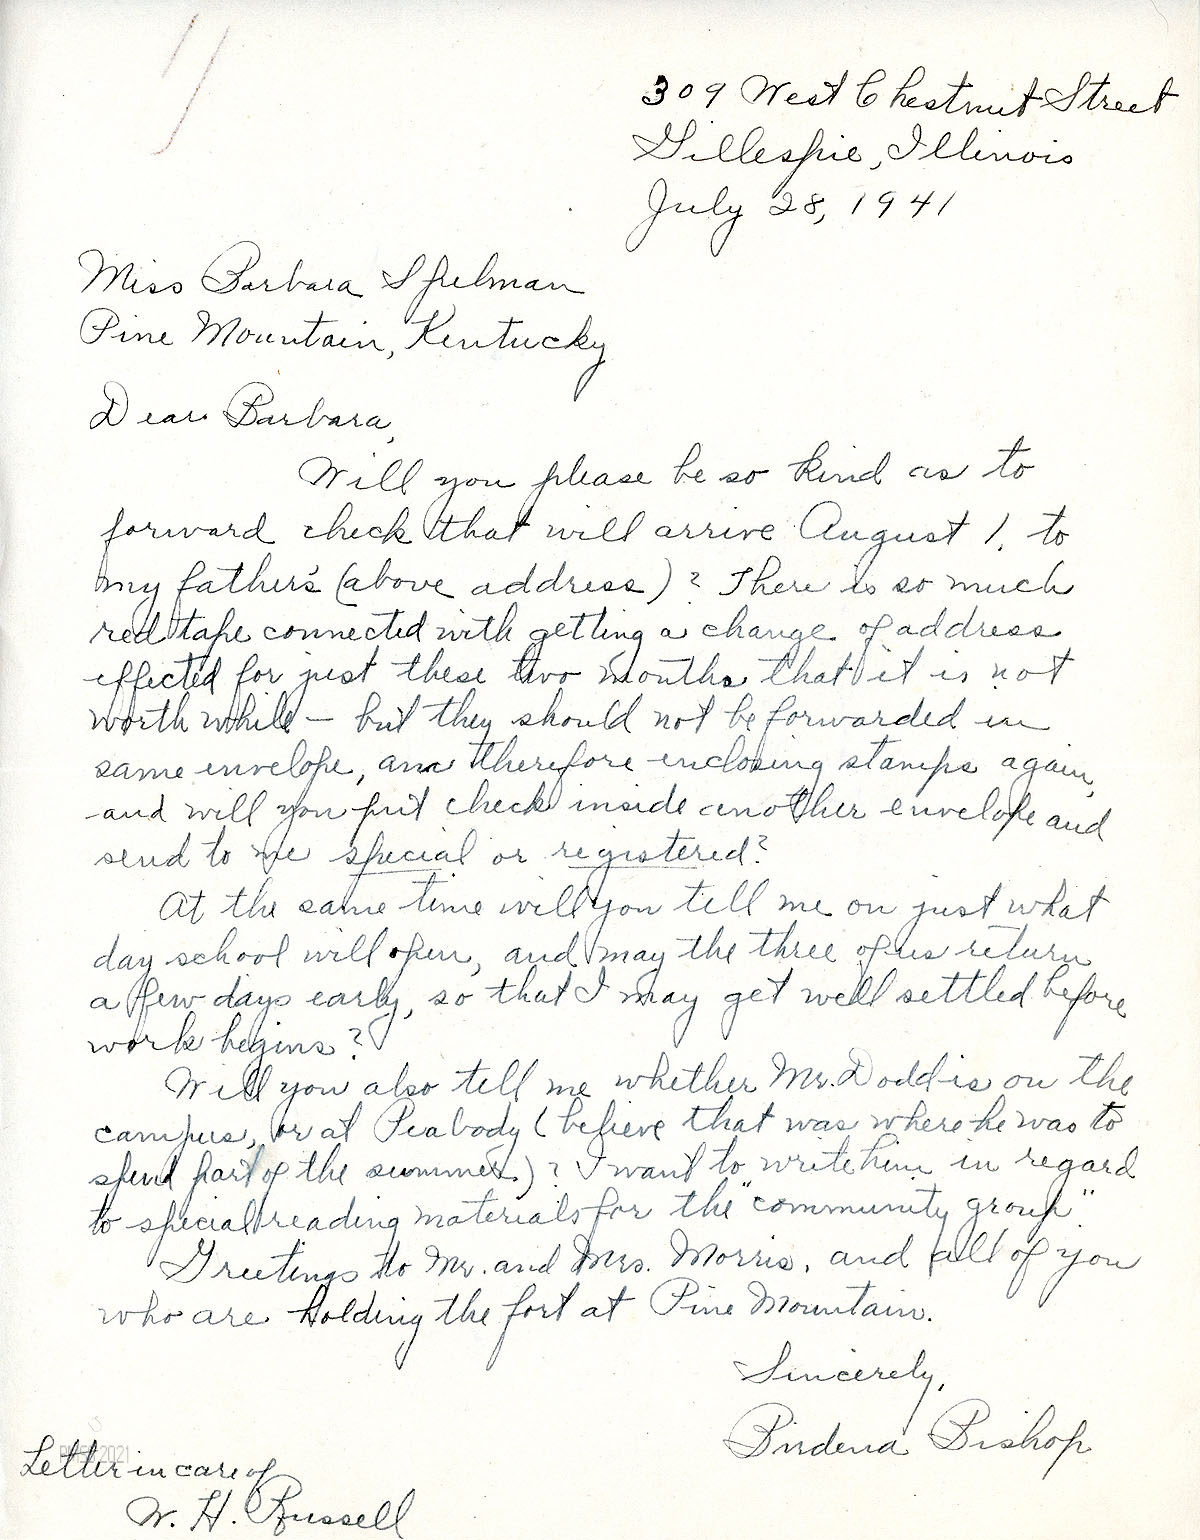 309 West Chestnut Street
Gillespie, Illinois
July 28, 1941
Miss Barbara Spelman
Pine Mountain, Kentucky
Dear Barbara,
Will you please be so kind as to
forward check that will arrive August 1, to
my father's (above address)? There is so much
red tape connected with getting a change of address
effected for just these two months that it is not
worth while — but they should not be forwarded in
same envelope, am therefore enclosing stamps again,
and will you put check inside another envelope and
send to me special or registered?
At the same time will you tell me on just what
day school will open, and may the three of us return
a few days early, so that I may get well settled before
work begins?
Will you also tell me whether Mr. Dodd is on the
campus, or at Peabody (believe that was where he was to
spend part of the summer.)? I want to write him in regard
to special reading materials for the "community group".
Greetings to Mr. and Mrs. Morris, and all of you
who are holding the fort at Pine Mountain.
Sincerely,
Birdena Bishop
2021
Letter in care of
W. H. Russell